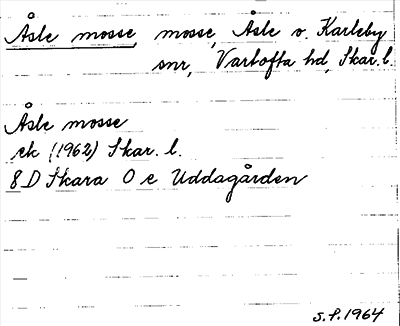 Åsle mosse, mosse, Åsle o. Karleby
snr, Vartofta hd, Skar. l.
Åsle mosse
ek (1962) Skar. l.
8 D Skara 0 e Uddagården
S.F. 1964